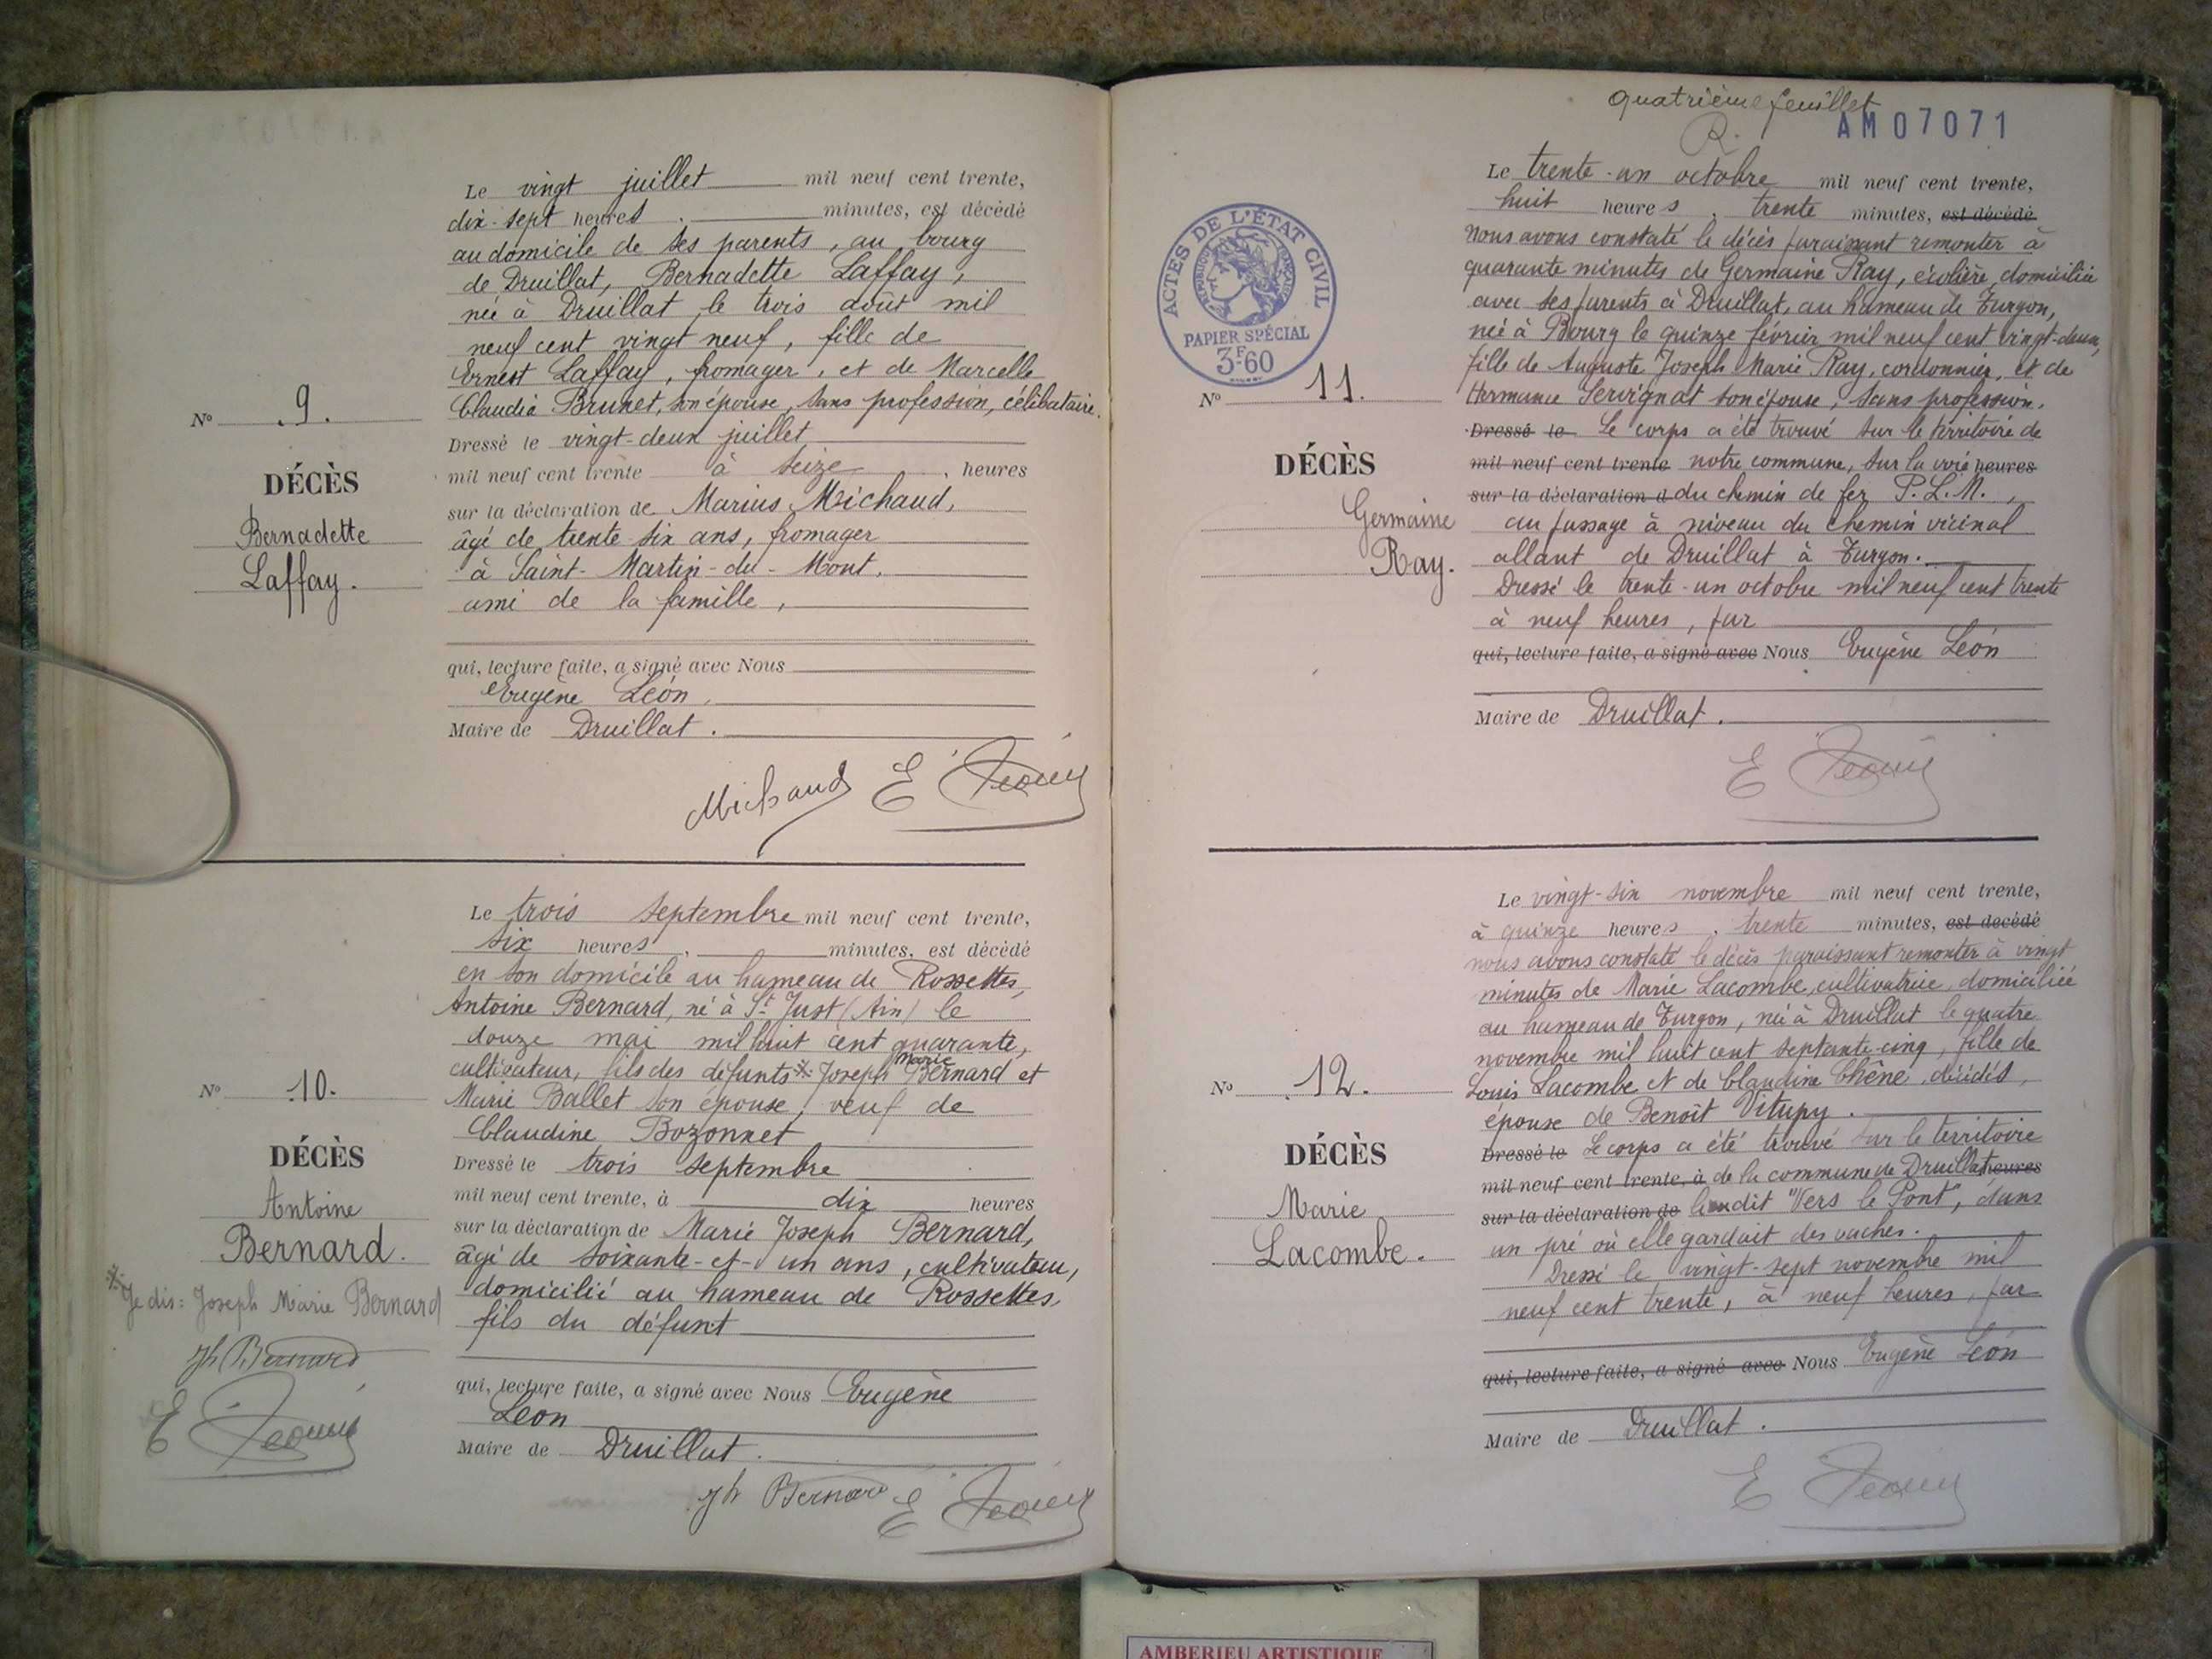 Le vingt juillet mil neuf cent trente,
dix-sept heures . minutes, est décédé
au domicile de ses parents, au bourg
de Druillat, Bernadette Laffay,
née à Druillat le trois août mil
neuf cent vingt neuf, fille de
Ernest Laffay, fromager, et de Marcelle
Claudia Brunet, son épouse, sans profession, célibataire.
Dressé le vingt-deux juillet
mil neuf cent trente à seize, heures
sur la déclaration de Marius Michaud,
âgé de trente-six ans, fromager
à Saint-Martin-du-Mont,
ami de la famille,
qui, lecture faite, a signé avec Nous
Eugène Léon,
Maire de Druillat.
Michaud E Léon
No 9.
DÉCÈS
Bernadette
Laffay.
Le trois septembre mil neuf cent trente,
six heures, minutes, est décédé
en son domicile au hameau de Rossettes,
Antoine Bernard, né à St Just (Ain) le
douze mai mil huit cent quarante,
marie
cultivateur, fils des défunts * Joseph Bernard et
Marie Ballet son épouse, veuf de
Claudine Bozonnet
Dressé le trois septembre
mil neuf cent trente, à dix heures
sur la déclaration de Marie Joseph Bernard,
âgé de soixante-et-un ans, cultivateur,
domicilié au hameau de Rossettes,
fils du défunt
qui, lecture faite, a signé avec Nous Eugène
Leon
Maire de Druillat.
Jh Bernard E Léon
No 10.
DÉCÈS
Antoine
Bernard.
* Je dis : Joseph Marie Bernard
Jh Bernard
E Léon
quatrième feuillet
R.
AM07071
ACTES DE L'ÉTAT CIVIL
RÉPUBLIQUE FRANÇAISE
PAPIER SPÉCIAL
3F60
Le trente-un octobre mil neuf cent trente,
huit heures, trente minutes, est décédé
nous avons constaté le décès paraissant remonter à
quarante minutes de Germaine Ray, écolière, domiciliée
avec ses parents à Druillat, au hameau de Turgon,
née à Bourg le quinze février mil neuf cent vingt-deux,
fille de Auguste Joseph Marie Ray, cordonnier, et de
Hermance Servignat son épouse, sans profession.
Dressé le Le corps a été trouvé sur le territoire de
mil neuf cent trente notre commune, sur la voie heures
sur la déclaration d du chemin de fer P.L.M.,
au passage à niveau du chemin vicinal
allant de Druillat à Turgon.
Dressé le trente-un octobre mil neuf cent trente
à neuf heures, par
qui, lecture faite, a signé avec Nous Eugène Léon
Maire de Druillat.
E Léon
No 11.
DÉCÈS
Germaine
Ray.
Le vingt-six novembre mil neuf cent trente,
à quinze heures, trente minutes, est décédé
nous avons constaté le décès paraissant remonter à vingt
minutes de Marie Lacombe, cultivatrice, domiciliée
au hameau de Turgon, née à Druillat le quatre
novembre mil huit cent septante-cinq, fille de
Louis Lacombe et de Claudine Chêne, décédés,
épouse de Benoît Vitupy.
Dressé le Le corps a été trouvé sur le territoire
mil neuf cent trente, à de la commune de Druillat heures
sur la déclaration de lieudit "Vers le Pont", dans
un pré où elle gardait des vaches.
Dressé le vingt-sept novembre mil
neuf cent trente, à neuf heures, par
qui, lecture faite, a signé avec Nous Eugène Léon
Maire de Druillat.
E Léon
No 12.
DÉCÈS
Marie
Lacombe.
AMBERIEU ARTISTIQUE